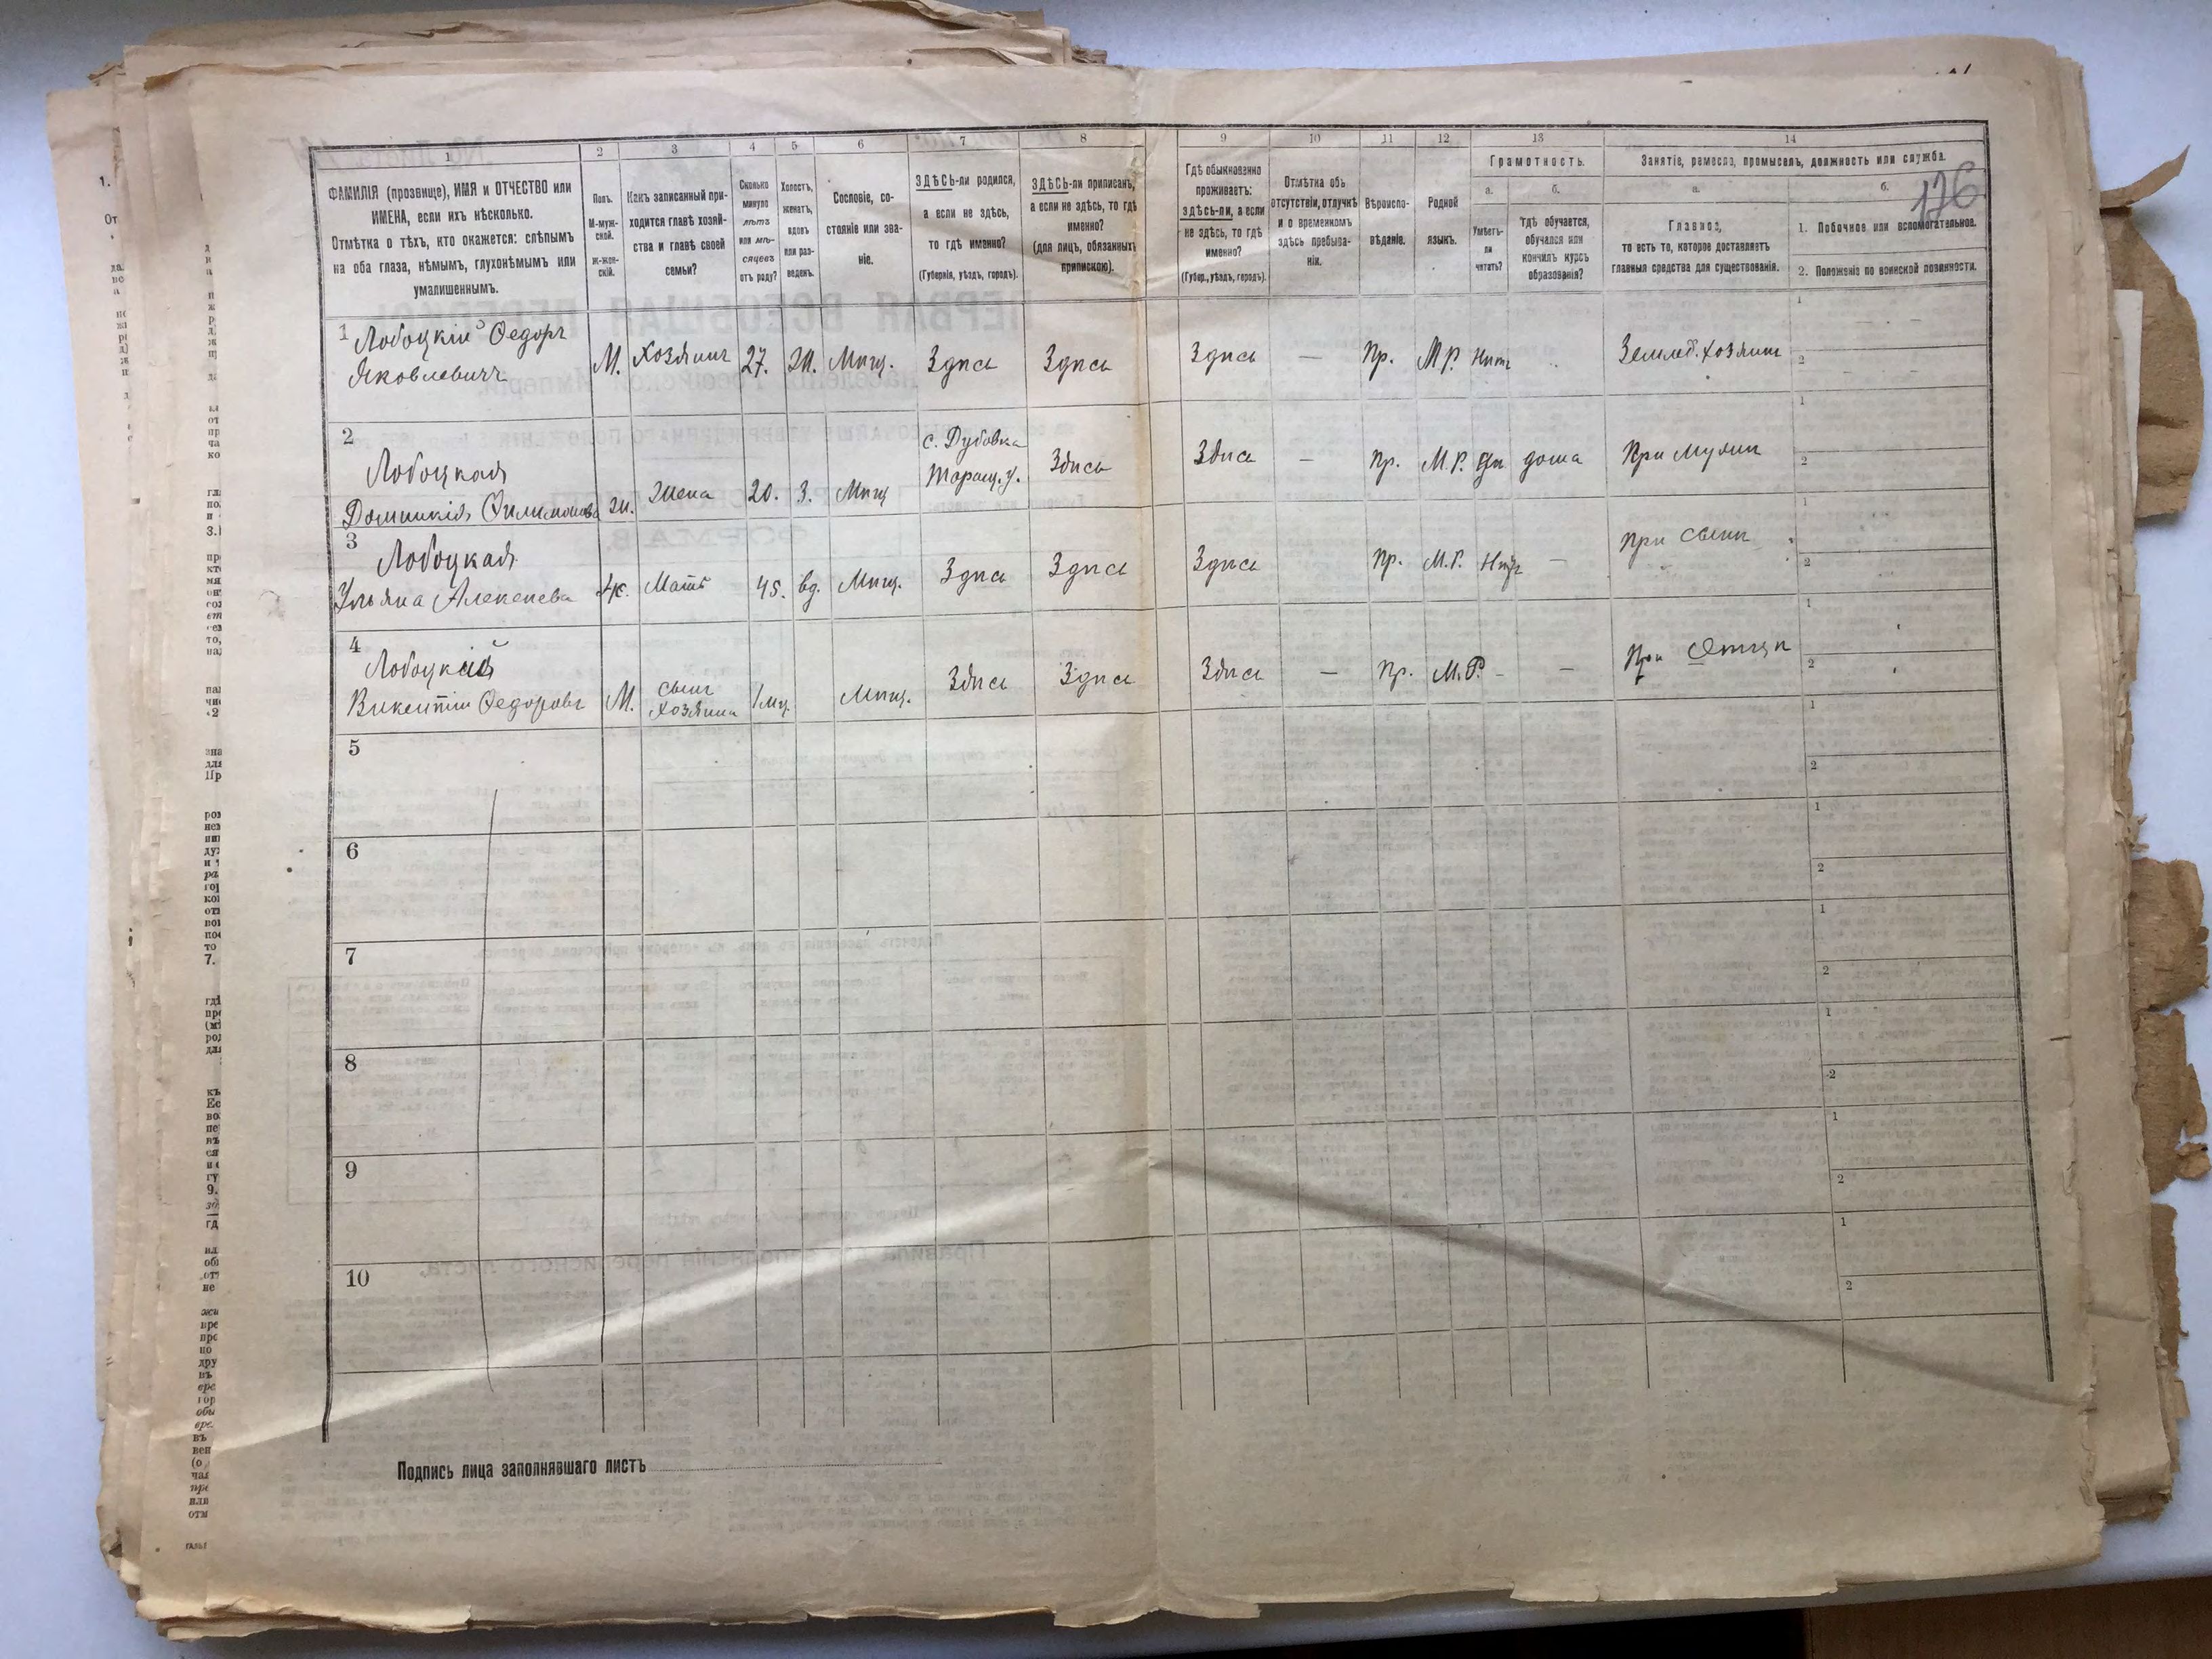 126
1 2 3 4 5 6 7 8 9 10 11 12 13 14
ФАМИЛІЯ (прозвище), ИМЯ и ОТЧЕСТВО или
ИМЕНА, если ихъ нѣсколько.
Отмѣтка о тѣхъ, кто окажется: слѣпымъ
на оба глаза, нѣмымъ, глухонѣмымъ или
умалишеннымъ.
Полъ.
М-муж-
ской.
Ж-жен-
скій.
Какъ записанный при-
ходится главѣ хозяй-
ства и главѣ своей
семьи?
Сколько
минуло
лѣтъ
или мѣ-
сяцевъ
отъ роду?
Холостъ,
женатъ,
вдовъ
или раз-
веденъ.
Сословіе, со-
стояніе или зва-
ніе.
ЗДѢСЬ-ли родился,
а если не здѣсь,
то гдѣ именно?
(Губернія, уѣздъ, городъ).
ЗДѢСЬ-ли приписанъ,
а если не здѣсь, то гдѣ
именно?
(для лицъ, обязанныхъ
припискою).
Гдѣ обыкновенно
проживаетъ:
здѣсь-ли, а если
не здѣсь, то гдѣ
именно?
(Губер., уѣздъ, городъ).
Отмѣтка объ
отсутствіи, отлучкѣ
и о временномъ
здѣсь пребыва-
ніи.
Вѣроиспо-
вѣданіе.
Родной
языкъ.
Грамотность.
а.
б.
Умѣетъ-
ли
читать?
Гдѣ обучается,
обучался или
кончилъ курсъ
образованія?
Занятіе, ремесло, промыселъ, должность или служба.
а.
б.
Главное,
то есть то, которое доставляетъ
главныя средства для существованія.
1. Побочное или вспомогательное.
2. Положеніе по воинской повинности.
1 Лобоцкій Ѳедоръ
Яковлевичъ
М. Хозяинъ 27. Ж. Мѣщ. Здѣсь Здѣсь Здѣсь — Пр. М.Р. Нѣтъ Землед. хозяинъ
1
2
2
Лобоцкая
Домникія Филимонова
ж. Жена 20. З. Мѣщ
с. Дубовка
Таращ. у.
Здѣсь Здѣсь — Пр. М.Р. Да дома При мужѣ
1
2
3
Лобоцкая
Ульяна Алексѣева
Ж. Мать 45. вд. Мѣщ. Здѣсь Здѣсь Здѣсь Пр. М.Р. Нѣтъ — При сынѣ
1
2
4
Лобоцкій
Викентій Ѳедоровъ
М.
сынъ
хозяина
1 мц. Мѣщ. Здѣсь Здѣсь Здѣсь — Пр. М.Р. - — При Отцѣ
1
2
5
1
2
6
1
2
7
1
2
8
1
2
9
1
2
10
1
2
Подпись лица заполнявшаго листъ